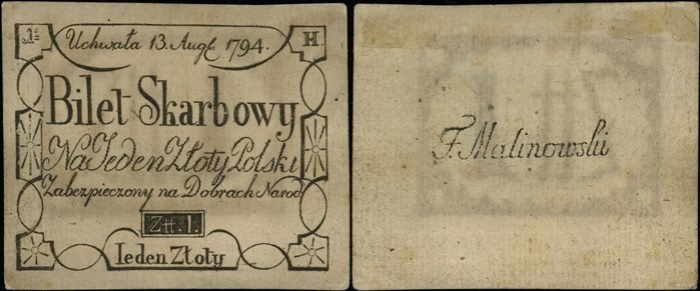 1.
Uchwała 13. Augt 1794.
H
Bilet Skarbowy
Na Jeden Złoty Polski
Zabezpieczony na Dobrach Narod
Złł. 1.
Ieden Złoty
F. Malinowski